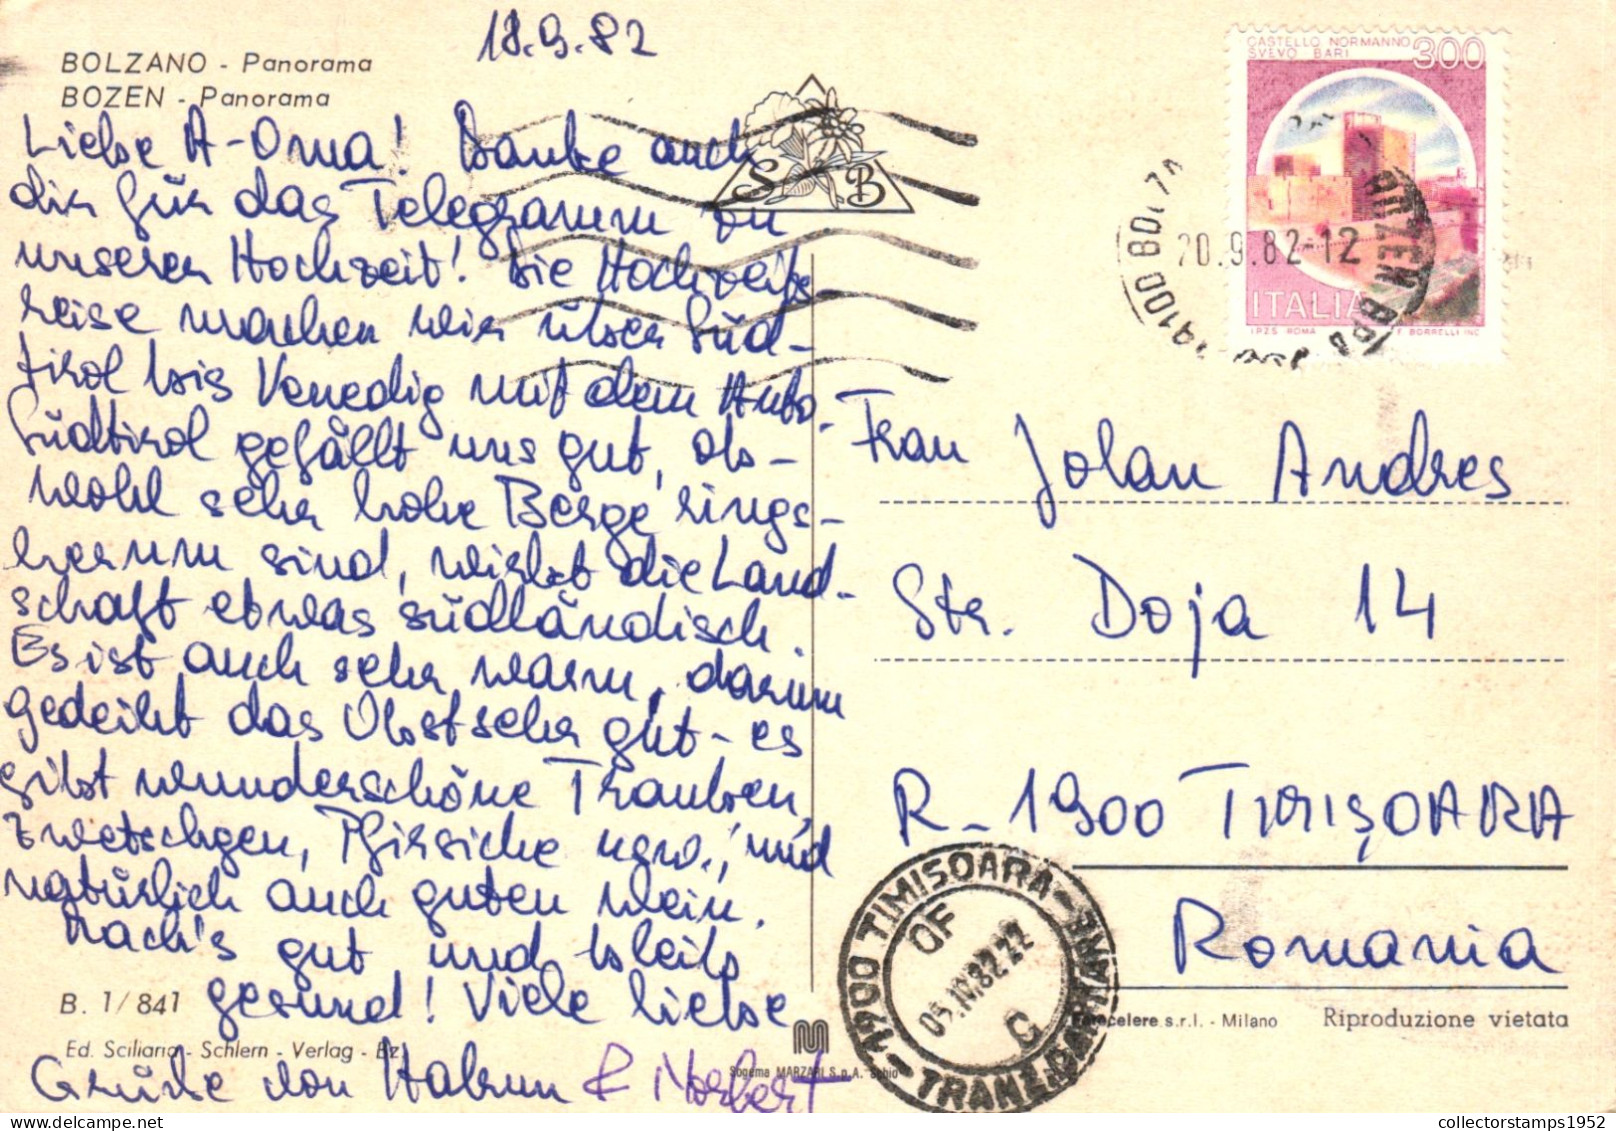 18.9.82
BOLZANO - Panorama
BOZEN - Panorama
Liebe A-Oma! Danke auch
dir für das Telegramm zu
unserer Hochzeit! Die Hochzeits
reise machen wir über Süd-
tirol bis Venedig mit dem Auto.
Südtirol gefällt uns gut, ob-
wohl sehr hohe Berge rings-
herum sind, wirkt die Land-
schaft etwas südländisch.
Es ist auch sehr warm, darum
gedeiht das Obst sehr gut - es
gibt wunderschöne Trauben,
Zwetschgen, Pfirsiche usw., und
natürlich auch guten Wein.
Mach's gut und bleib
gesund! Viele liebe
Grüße von & Norbert
B. 1/841
Ed. Sciliaria - Schlern - Verlag - Bz
S B
CASTELLO NORMANNO
SVEVO BARI
300
ITALIA
I.P.Z.S. ROMA
F. BORRELLI INC.
39100 BOLZA
BOZEN
20.9.82-12
Frau Jolan Andres
Str. Doja 14
R-1900 TIMIŞOARA
Romania
1900 TIMISOARA
OF
82 22
C
s.r.l. - Milano
Riproduzione vietata
Sogema MARZARI S.p.A. Schio
collectorstamps1952